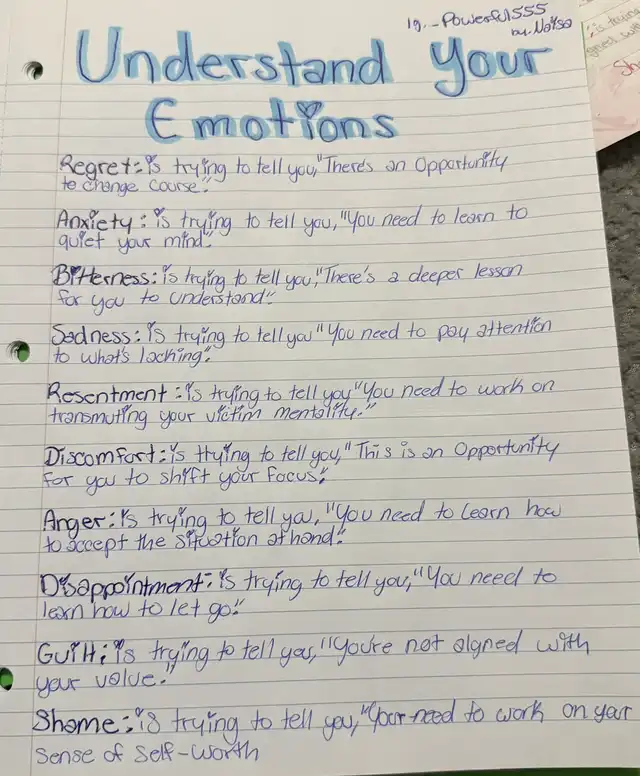 ig.-Powerful555
by. Naisa
Understand Your
Emotions
Regret: is trying to tell you, "There's an Opportunity
to change course".
Anxiety: is trying to tell you, "You need to learn to
quiet your mind".
Bitterness: is trying to tell you, "There's a deeper lesson
for you to understand".
Sadness: is trying to tell you "You need to pay attention
to what's lacking".
Resentment: is trying to tell you "You need to work on
transmuting your victim mentality."
Discomfort: is trying to tell you, "This is an Opportunity
for you to shift your focus".
Anger: is trying to tell you, "You need to learn how
to accept the situation at hand".
Disappointment: is trying to tell you, "You need to
learn how to let go".
Guilt: is trying to tell you, "You're not aligned with
your value."
Shame: is trying to tell you, "Your need to work on your
sense of self-worth
is trying
Sh